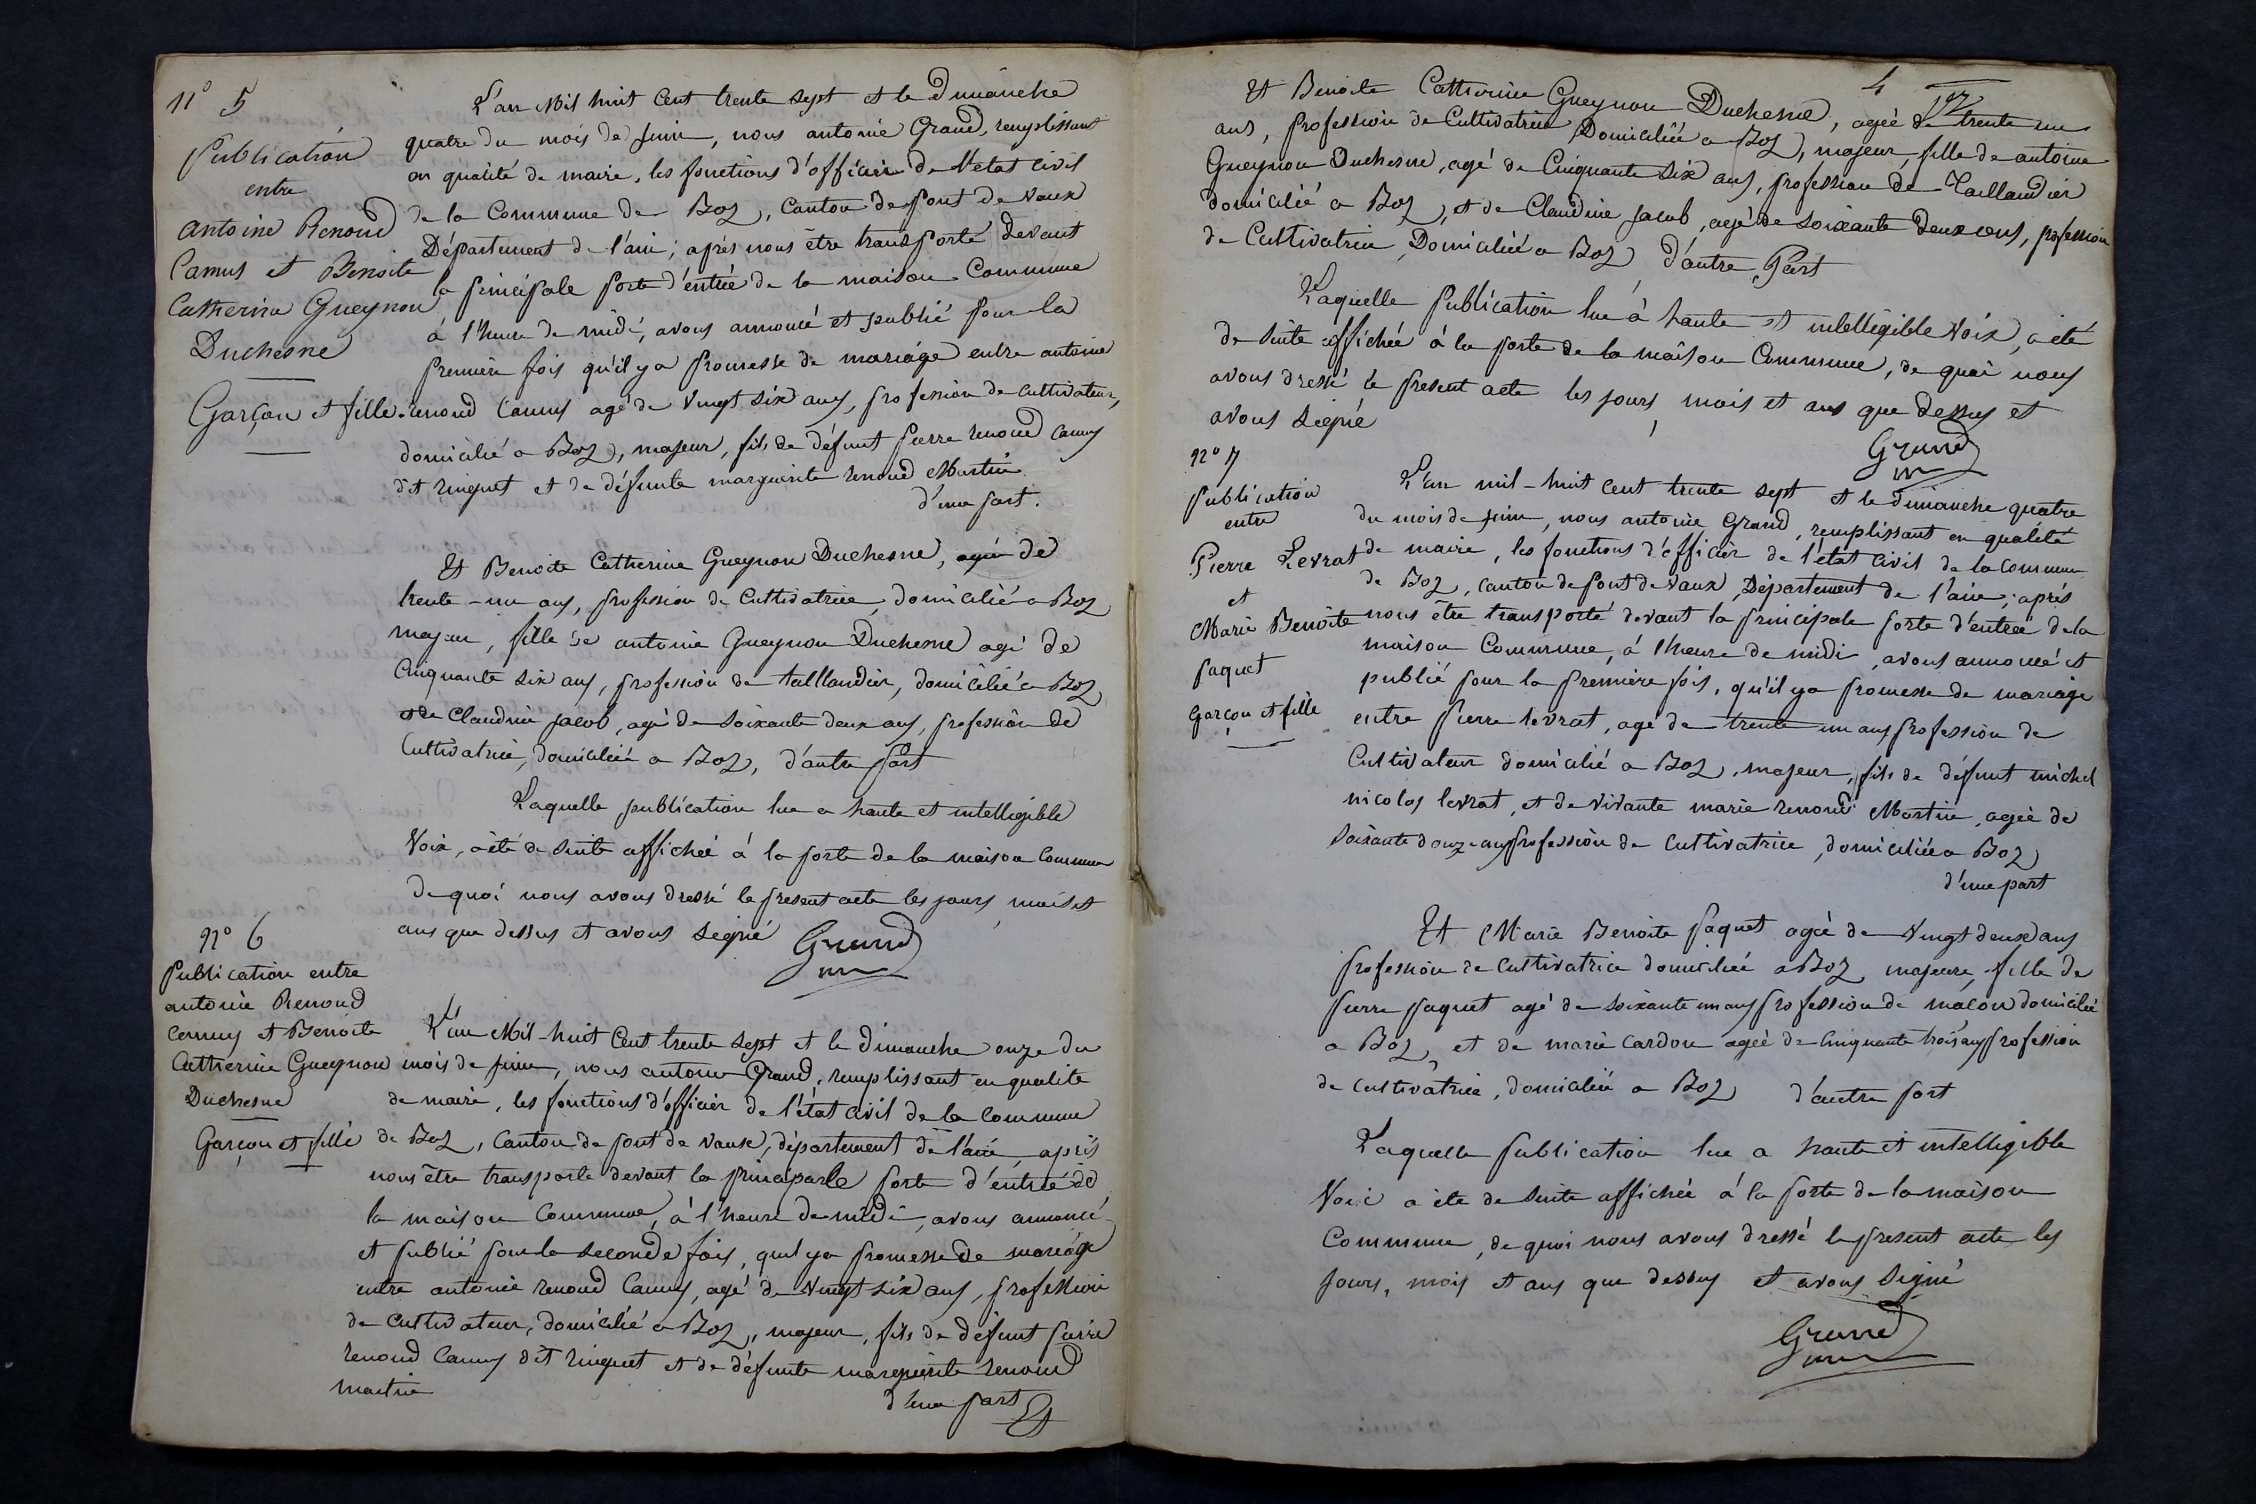 n° 5
Publication
entre
antoine Renoud
Camus et Benoite
Catherine Gueynon
Duchesne
Garçon et fille.
L'an Mil huit Cent trente sept et le Dimanche
quatre du mois de juin, nous antoine Grand, remplissant
en qualité de maire, les fonctions d'officier de l'etat civil
de la Commune de Boz, Canton de Pont de Vaux
Département de l'ain; après nous être transporté devant
la principale porte d'entrée de la maison Commune
à l'heure de midi, avons annoncé et publié pour la
première fois qu'il y a promesse de mariage entre antoine
renoud Camus agé de Vingt six ans, profession de cultivateur,
domicilié a Boz, majeur, fils de défunt pierre renoud camus
dit ringuet et de défunte marguerite renoud Martin
d'une part.
Et Benoite Catherine Gueynon Duchesne, agée de
trente-un ans, profession de Cultivatrice, domicilié a Boz
majeur, fille de antoine Gueynon Duchesne agé de
Cinquante six ans, profession de taillandier, domicilié a Boz
et de Claudine jacob, agé de soixante deux ans, profession de
Cultivatrice, domiciliée a Boz, d'autre part
Laquelle publication lue a haute et intelligible
Voix, a été de suite affichée à la porte de la maison Commune
de quoi nous avons dressé le present acte les jours, mois et
ans que dessus et avons signé Grand
n° 6
Publication entre
antoine Renoud
Camus et Benoite
Catherine Gueynon
Duchesne
Garçon et fille
L'an Mil-huit Cent trente sept et le Dimanche onze du
mois de juin, nous antoine Grand, remplissant en qualité
de maire, les fonctions d'officier de l'état civil de la Commune
de Boz, Canton de pont de vaux, département de l'ain, après
nous être transporté devant la principale porte d'entrée de
la maison Commune, à l'heure de midi, avons annoncé
et publié pour la seconde fois, qu'il y a promesse de mariage
entre antoine renoud Camus, agé de Vingt six ans, profession
de Cultivateur, domicilié a Boz, majeur, fils de défunt pierre
renoud Camus dit ringuet et de défunte marguerite renoud
martin
d'une part
Et
4
Et Benoite Catherine Gueynon Duchesne, agée de trente un
ans, profession de Cultivatrice Domiciliée a Boz, majeur, fille de antoine
Gueynon Duchesne, agé de Cinquante six ans, profession de Taillandier
domicilié a Boz, et de Claudine jacob, agé de soixante deux ans, profession
de Cultivatrice, Domiciliée a Boz d'autre Part
Laquelle Publication lue à haute et intelligible Voix, a été
de suite affichée à la porte de la maison Commune, de quoi nous
avons dressé le present acte les jours, mois et ans que dessus et
avons signé
Grand
n° 7
publication
entre
Pierre Levrat
et
Marie Benoite
paquet
Garçon et fille
L'an mil-huit cent trente sept et le dimanche quatre
du mois de juin, nous antoine Grand, remplissant en qualité
de maire, les fonctions d'officier de l'état civil de la commune
de Boz, canton de pont de Vaux, Département de l'ain; après
nous être transporté devant la principale porte d'entrée de la
maison Commune, à l'heure de midi, avons annoncé et
publié pour la première fois, qu'il y a promesse de mariage
entre pierre levrat, agé de trente un ans profession de
Cultivateur domicilié a Boz, majeur, fils de défunt michel
nicolas levrat, et de vivante marie renoud Martin, agée de
soixante douze ans profession de Cultivatrice, domiciliée a Boz
d'une part
Et Marie Benoite paquet agée de Vingt deux ans
profession de Cultivatrice domiciliée a Boz, majeure, fille de
pierre paquet agé de soixante un ans profession de maçon domicilié
a Boz, et de marie cardon agée de Cinquante trois ans profession
de cultivatrice, domiciliée a Boz d'autre part
Laquelle publication lue a haute et intelligible
Voix a été de suite affichée à la porte de la maison
Commune, de quoi nous avons dressé le present acte les
jours, mois et ans que dessus et avons signé
Grand